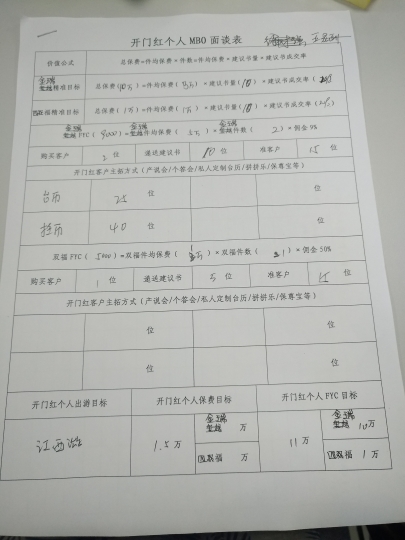 开门红个人 MBO 面谈表
价值公式 总保费=件均保费×件数=件均保费×建议书量×建议书成交率
金瑞
精准目标 总保费( )=件均保费( )×建议书量(10)×建议书成交率( )
福精准目标 总保费(1万)=件均保费(1万)×建议书量(10)×建议书成交率( )
金瑞 金瑞 金瑞
FYC( 9000 )=件均保费( 5万 )×件数( 2 )×佣金 9%
购买客户 2 位 递送建议书 10 位 准客户 15 位
开门红客户主拓方式(产说会/个答会/私人定制台历/拼拼乐/保尊宝等)
台历 25 位
40 位
双福 FYC( 5000 )=双福件均保费( 1万 )×双福件数( 1 )×佣金 50%
购买客户 1 位 递送建议书 5 位 准客户 15 位
开门红客户主拓方式(产说会/个答会/私人定制台历/拼拼乐/保尊宝等)
位 位
位 位
开门红个人出游目标 开门红个人保费目标 开门红个人 FYC 目标
江西 1.5 万 金瑞 万 11 万 金瑞 10 万
双福 万 双福 1 万